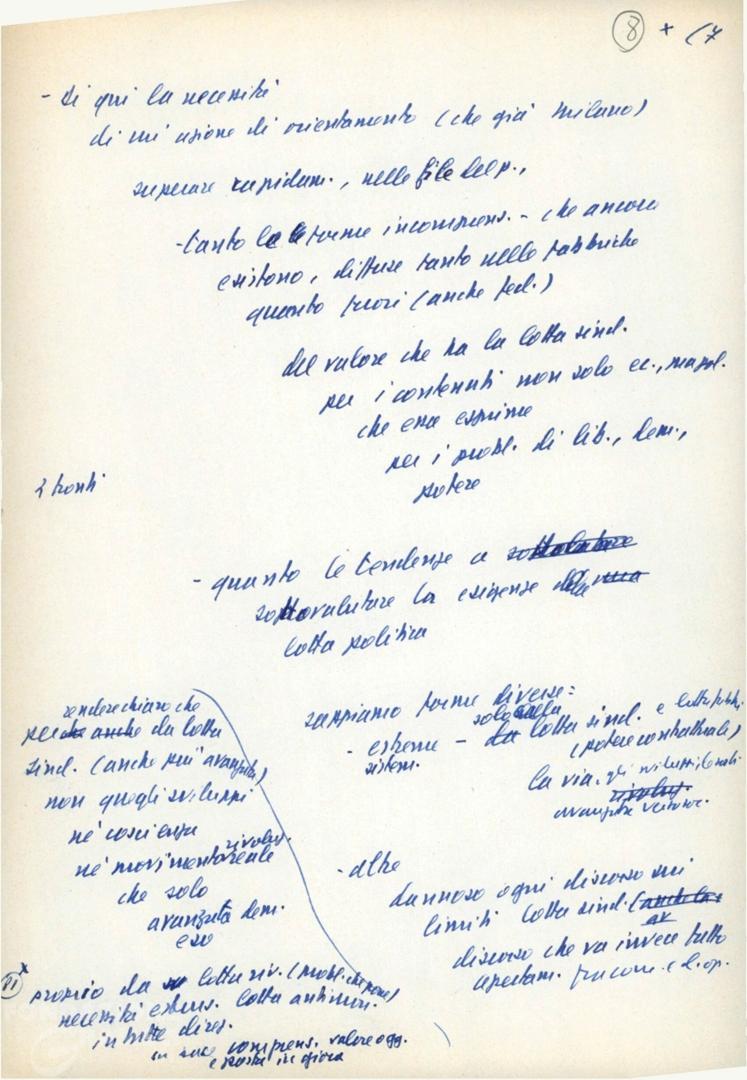 8 + (7
- di qui la necessità
di un'azione di orientamento (che già Milano)
superare rapidam., nelle file del p.,
- tanto le forme incomprens. - che ancora
esistono, diffuse tanto nelle fabbriche
quanto fuori (anche fed.)
del valore che ha la lotta sind.
per i contenuti non solo ec., ma pol.
che essa esprime
per i probl. di lib., dem.,
potere
2 fronti
- quanto le tendenze a sottovalutare
sottovalutare la esigenza della una
lotta politica
sappiamo forme diverse:
- estreme - solo dalla lotta sind. e lotta fabbr.
sistem. (potere contrattuale)
la via, gli sviluppi
rivoluz.
avanzata verso soc.
- altre
dannoso ogni discorso sui
limiti lotta sind. (anche la
av
discorso che va invece fatto
apertam. fra com. e cl. op.
rendere chiaro che
perchè anche da lotta
sind. (anche più avanzata)
non quegli sviluppi
nè coscienza
nè movimento reale rivoluz.
che solo
avanzata dem.
e so
proprio da lotta riv. (probl. che pone)
necessità estens. lotta antimon.
in tutte direz.
in luce comprens. valore ogg.
e posta in gioco